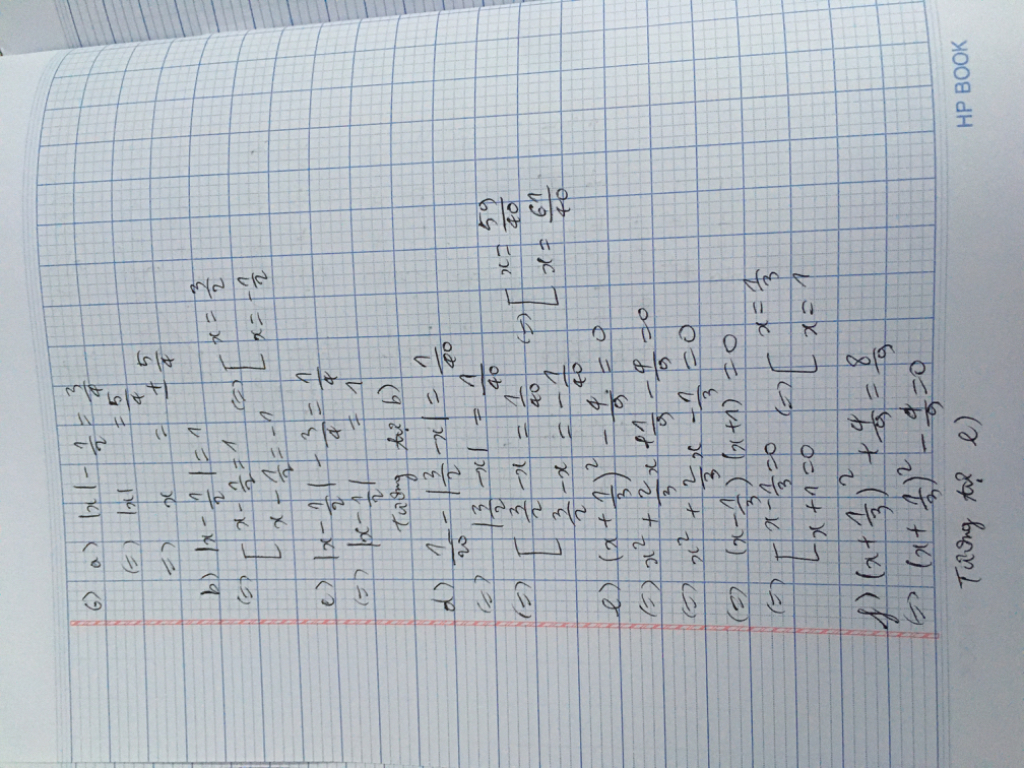 6) a) |x| - 1/2 = 3/4
(=) |x| = 5/4
=) x = ± 5/4
b) |x - 1/2| = 1
(=) [ x - 1/2 = 1 (=) [ x = 3/2
x - 1/2 = -1 x = -1/2
c) |x - 1/2| - 3/4 = 1/4
(=) |x - 1/2| = 1
Tương tự b)
d) 1/20 - |3/2 - x| = 1/40
(=) |3/2 - x| = 1/40
(=) [ 3/2 - x = 1/40 (=) [ x = 59/40
3/2 - x = -1/40 x = 61/40
e) (x + 1/3)² - 4/9 = 0
(=) x² + 2/3 x + 1/9 - 4/9 = 0
(=) x² + 2/3 x - 1/3 = 0
(=) (x - 1/3)(x + 1) = 0
(=) [ x - 1/3 = 0 (=) [ x = 1/3
x + 1 = 0 x = 1
f) (x + 1/3)² + 4/9 = 8/9
(=) (x + 1/3)² - 4/9 = 0
Tương tự e)
HP BOOK